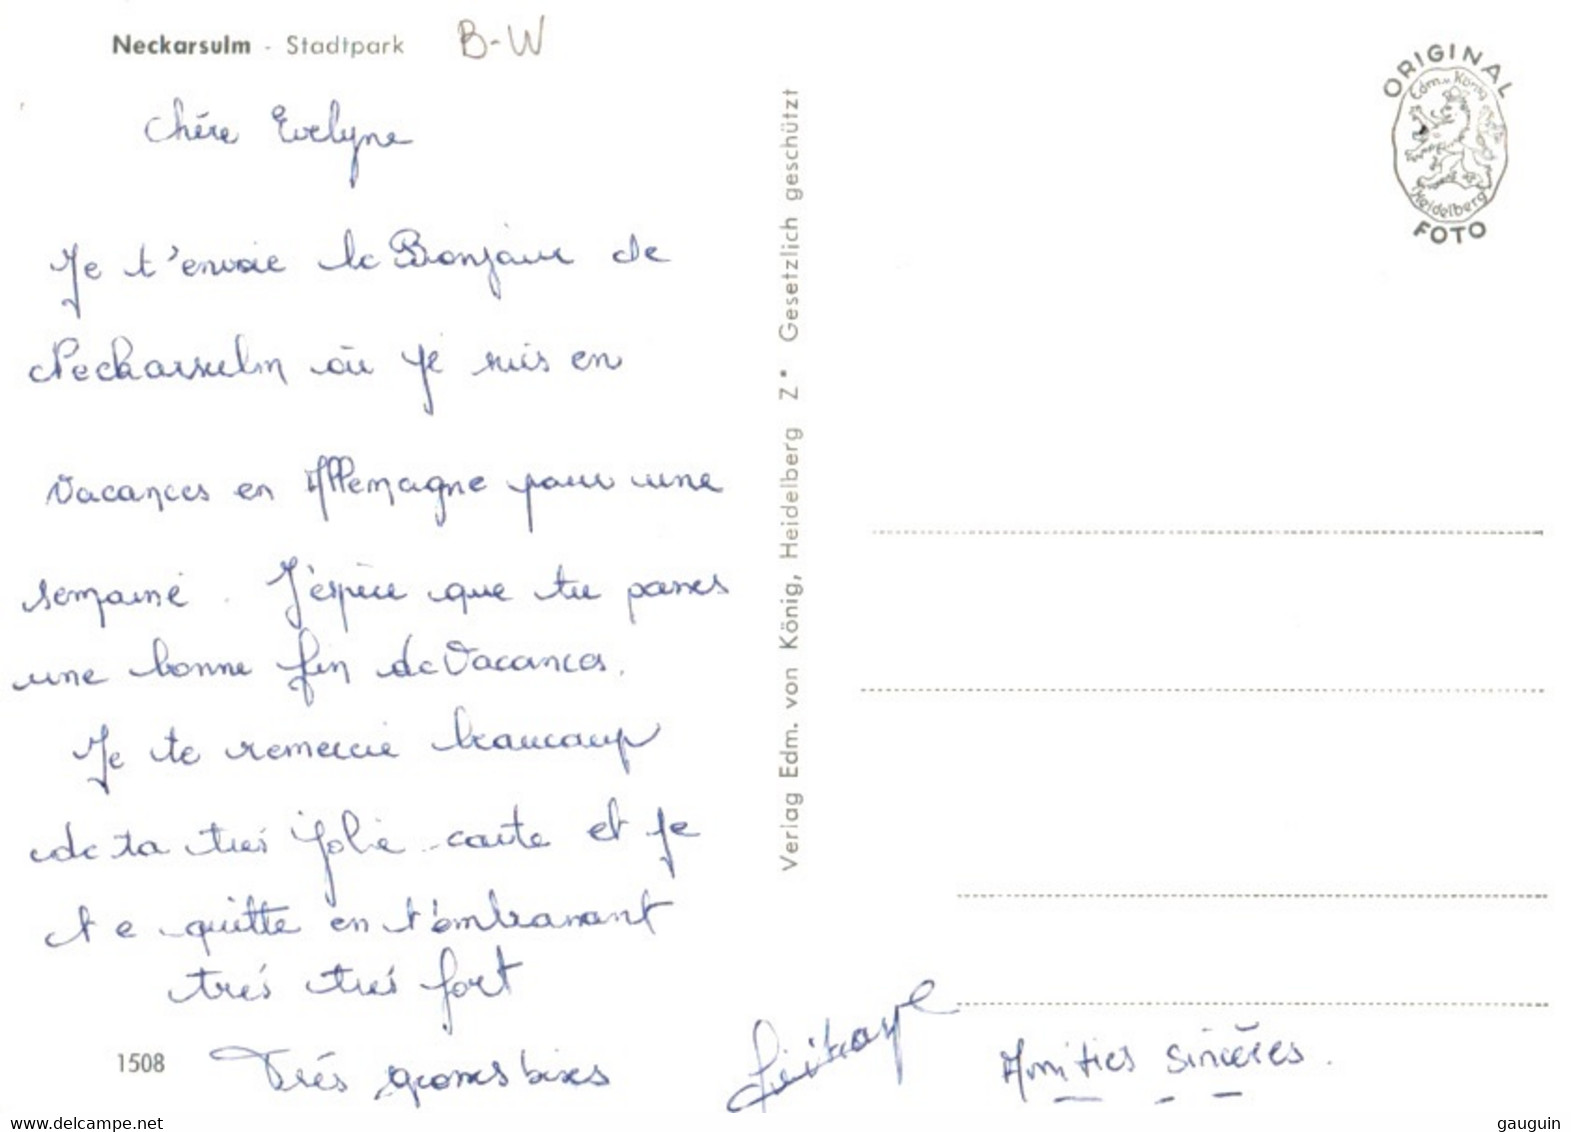 Neckarsulm - Stadtpark
B-W
Chére Evelyne
Je t'envoie le Bonjour de
Neckarsulm où je suis en
vacances en Allemagne pour une
semaine. J'espère que tu passes
une bonne fin de Vacances.
Je te remercie beaucoup
de ta trés jolie carte et je
te quitte en t'embrassant
trés trés fort
Trés grosses bises
Amitiés sincères.
1508
Verlag Edm. von König, Heidelberg Z* Gesetzlich geschützt
ORIGINAL
Edm. v. König
Heidelberg
FOTO
gauguin